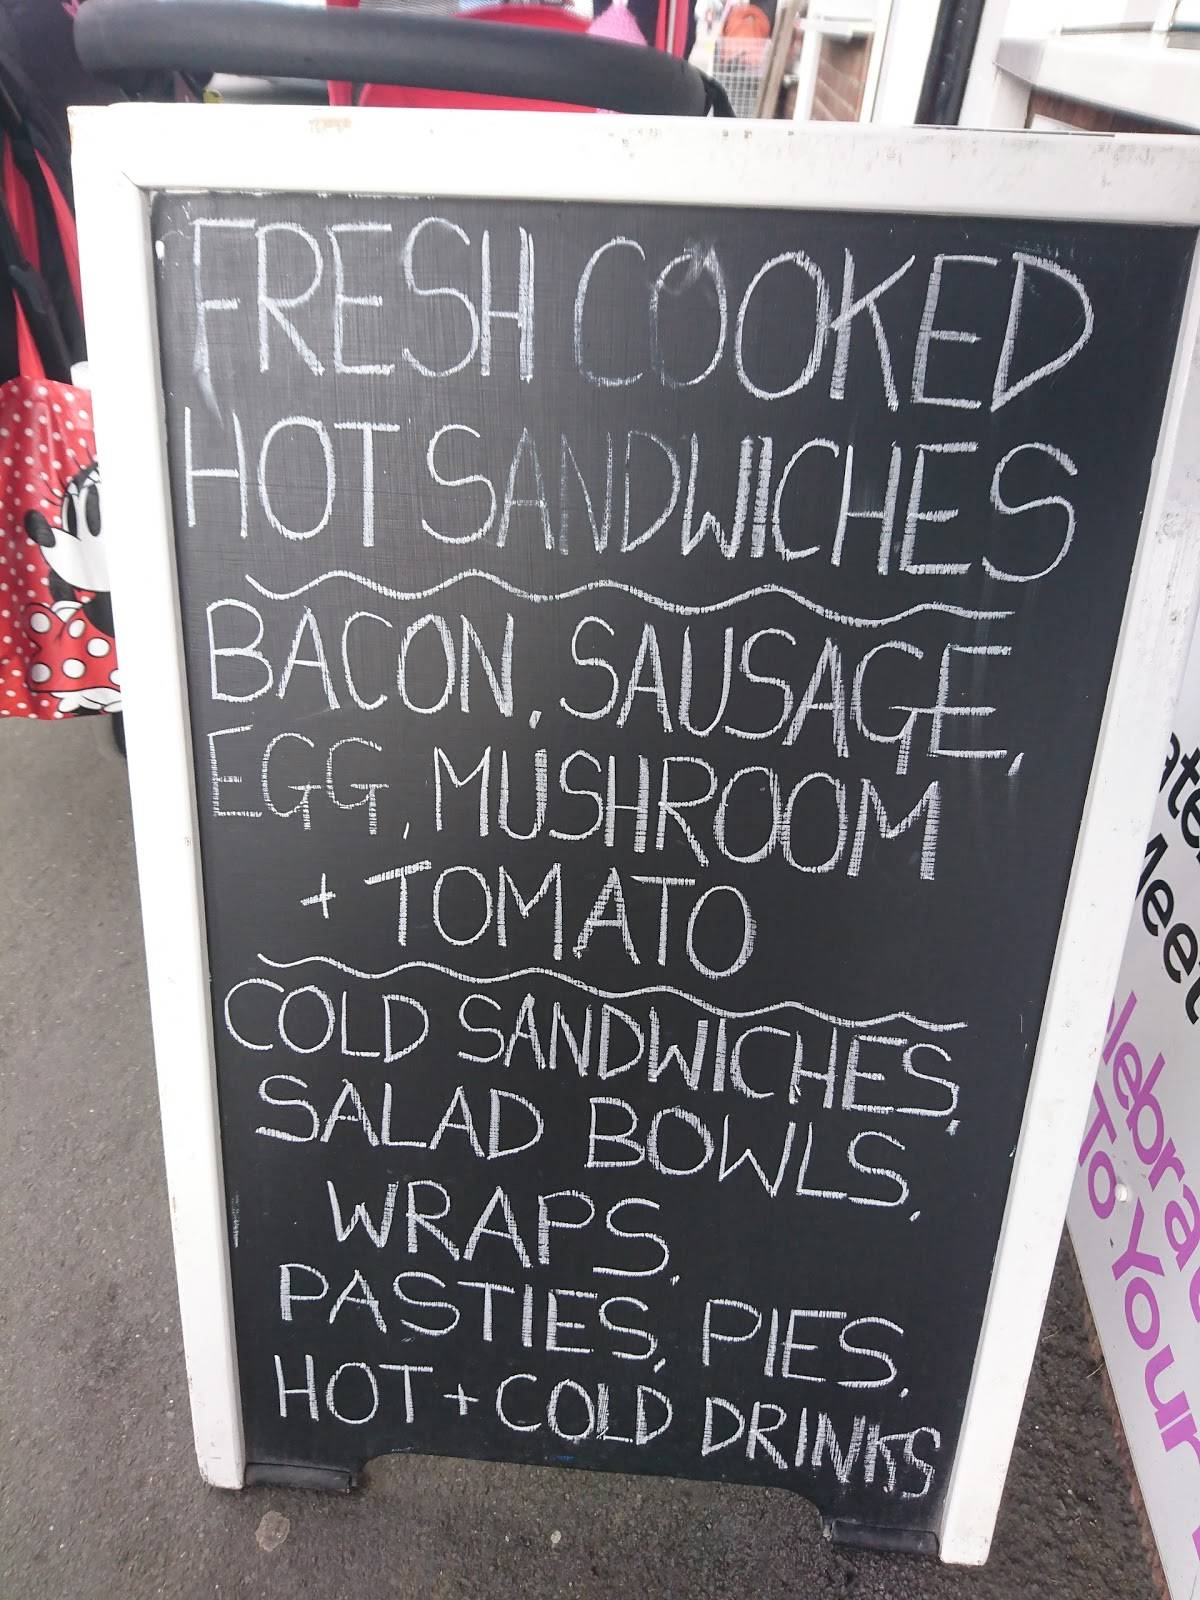 FRESH COOKED
HOT SANDWICHES
BACON, SAUSAGE,
EGG, MUSHROOM
+ TOMATO
COLD SANDWICHES,
SALAD BOWLS,
WRAPS,
PASTIES, PIES,
HOT + COLD DRINKS
To Your